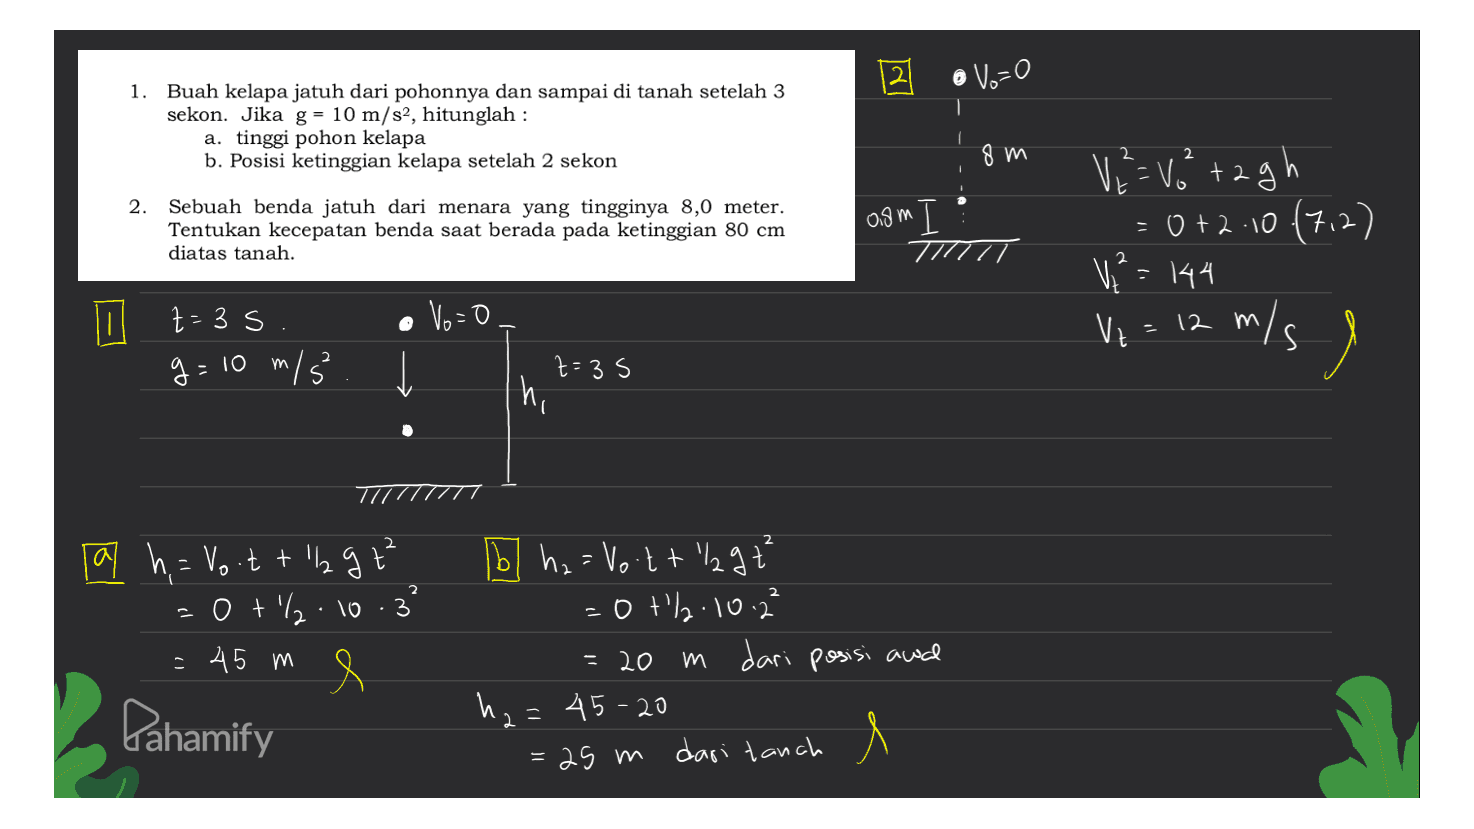 1. Buah kelapa jatuh dari pohonnya dan sampai di tanah setelah 3
sekon. Jika g = 10 m/s², hitunglah :
a. tinggi pohon kelapa
b. Posisi ketinggian kelapa setelah 2 sekon
2. Sebuah benda jatuh dari menara yang tingginya 8,0 meter.
Tentukan kecepatan benda saat berada pada ketinggian 80 cm
diatas tanah.
2
V₀=0
8 m
0,8 m
Vt² = V₀² + 2gh
= 0 + 2 . 10 . (7,2)
Vt² = 144
Vt = 12 m/s
1
t = 3 s.
g = 10 m/s².
V₀=0
h₁
t = 3 s
a
h₁ = V₀.t + 1/2 g t²
= 0 + 1/2 . 10 . 3²
= 45 m
b
h₂ = V₀.t + 1/2 g t²
= 0 + 1/2 . 10 . 2²
= 20 m dari posisi awal
h₂ = 45 - 20
= 25 m dari tanah
Pahamify